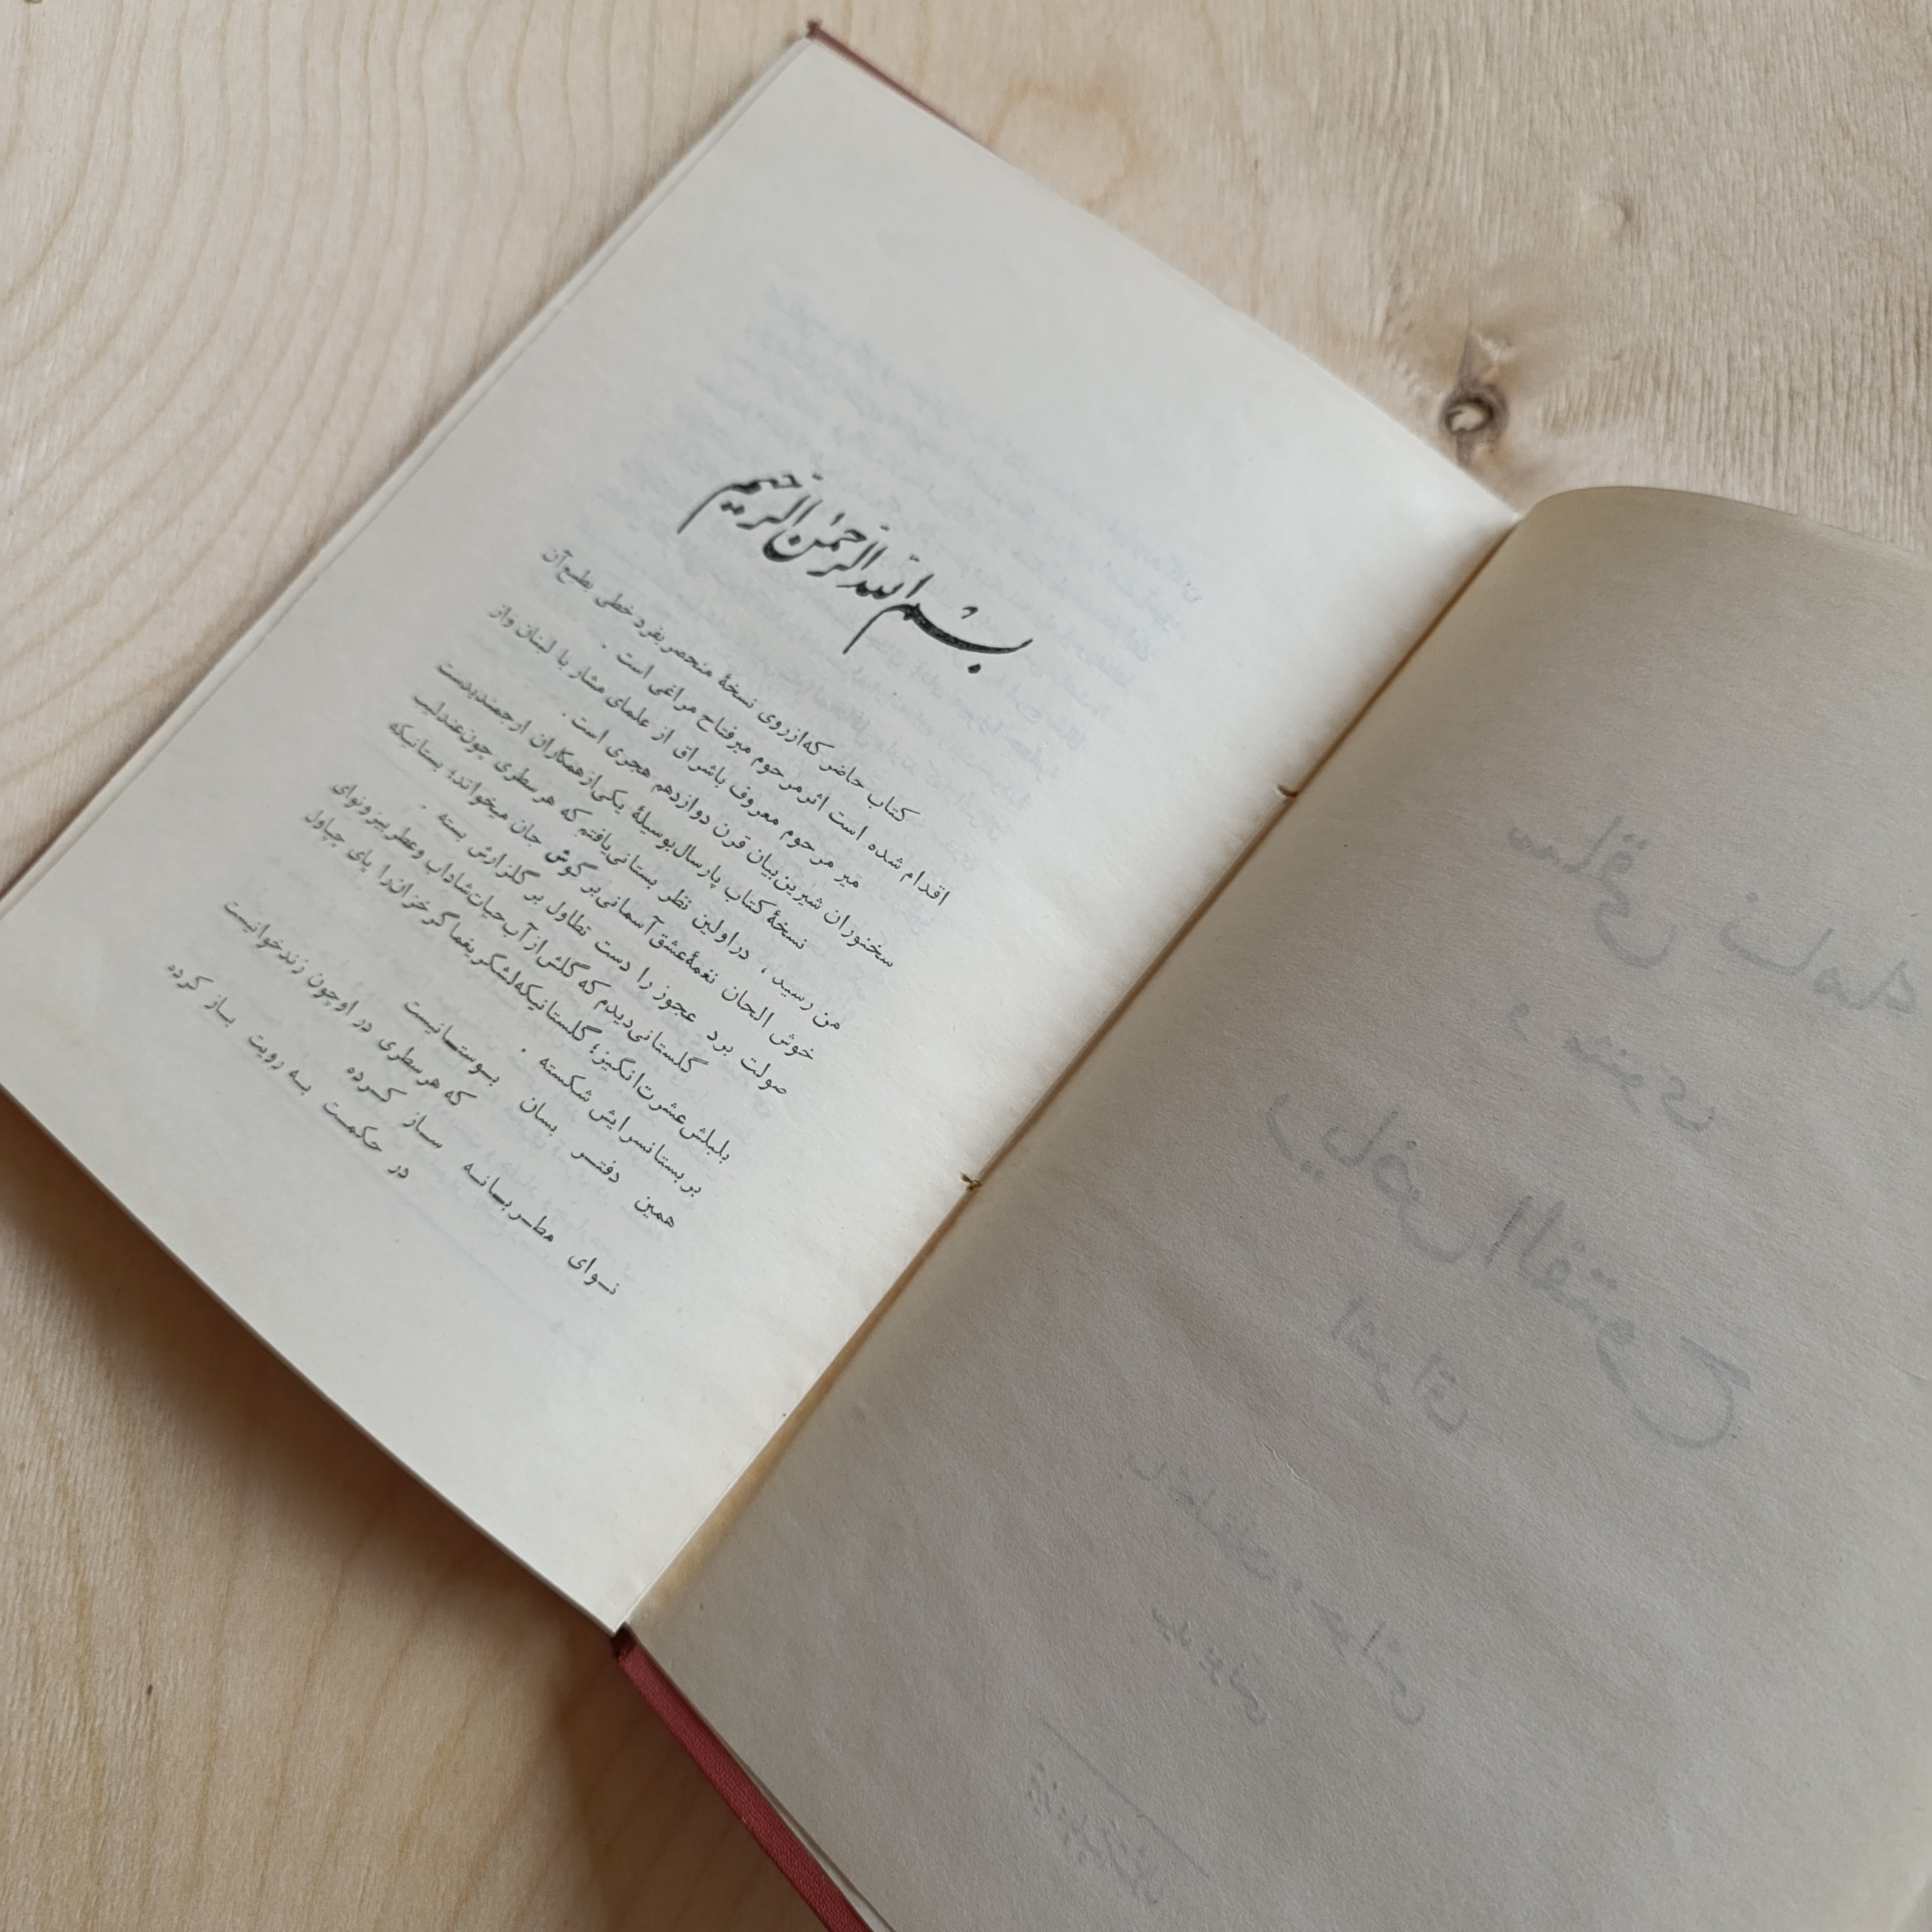 بسم الله الرحمن الرحیم
کتاب حاضر که‌ازروی نسخهٔ منحصر بفرد خطی بطبع‌آن
اقدام شده است اثرمرحوم میرفتاح مراغی است .
میر مرحوم معروف باشراق از علمای مشار با لبنان واز
سخنوران شیرین‌بیان قرن دوازدهم هجری است .
نسخهٔ کتاب پارسال‌بوسیلهٔ یکی‌ازهمکاران ارجمندبدست
من رسید ، دراولین نظر بستانی‌یافتم که هرسطری چون‌عندلیب
خوش الحان نغمهٔ‌عشق آسمانی‌بر گوش جان میخواند؛ بستانیکه
صولت برد عجوز را دست تطاول بر گلزارش بسته .
گلستانی‌دیدم که گلش‌از آب‌حیات‌شاداب وعطربیز ونوای
بلبلش‌عشرت‌انگیز؛ گلستانیکه‌لشکریغماگرخزان‌را پای چپاول
بر بستانسرایش شکسته .
همین دفتر بسان بوستانیست
که هرسطری در اوچون زندخوانیست
نوای مطربانه ساز کرده
در حکمت به رویت باز کرده
ساقی نامه
و مثنوی
ریاض الفتوح
اشراق